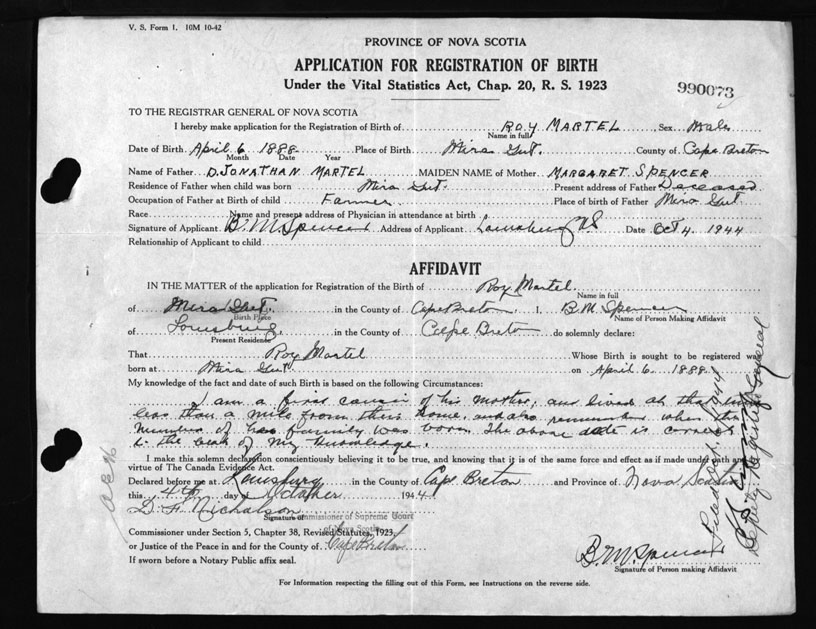 V. S. Form 1. 10M 10-42
PROVINCE OF NOVA SCOTIA
APPLICATION FOR REGISTRATION OF BIRTH
Under the Vital Statistics Act, Chap. 20, R. S. 1923
990073
TO THE REGISTRAR GENERAL OF NOVA SCOTIA
I hereby make application for the Registration of Birth of ROY MARTEL, Sex Male
Name in full
Date of Birth April 6 1888 Place of Birth Mira Gut. County of Cape Breton
Month Date Year
Name of Father D. JONATHAN MARTEL MAIDEN NAME of Mother MARGARET SPENCER
Residence of Father when child was born Mira Gut. Present address of Father Deceased
Occupation of Father at Birth of child Farmer. Place of birth of Father Mira Gut.
Race Name and present address of Physician in attendance at birth
Signature of Applicant B. M. Spencer Address of Applicant Louisburg N.S Date Oct 4 1944
Relationship of Applicant to child
AFFIDAVIT
IN THE MATTER of the application for Registration of the Birth of Roy Martel.
Name in full
of Mira Gut. in the County of Cape Breton I, B. M. Spencer
Birth Place Name of Person Making Affidavit
of Louisburg, in the County of Cape Breton do solemnly declare:
Present Residence
That Roy Martel Whose Birth is sought to be registered was
born at Mira Gut. on April 6 1888
My knowledge of the fact and date of such Birth is based on the following Circumstances:
I am a first cousin of his mother, and lived at that time
less than a mile from their home, and also remember when the
number of her family was born. The above date is correct
to the best of my knowledge.
I make this solemn declaration conscientiously believing it to be true, and knowing that it is of the same force and effect as if made under oath and
virtue of The Canada Evidence Act.
Declared before me at Louisburg in the County of Cape Breton and Province of Nova Scotia
this 4th day of October 1944
D. F. Nicholson
Signature of Commissioner of Supreme Court
of Nova Scotia
Commissioner under Section 5, Chapter 38, Revised Statutes, 1923,
or Justice of the Peace in and for the County of Cape Breton
If sworn before a Notary Public affix seal.
B. M. Spencer
Signature of Person making Affidavit
For Information respecting the filling out of this Form, see Instructions on the reverse side.
Deputy Registrar General